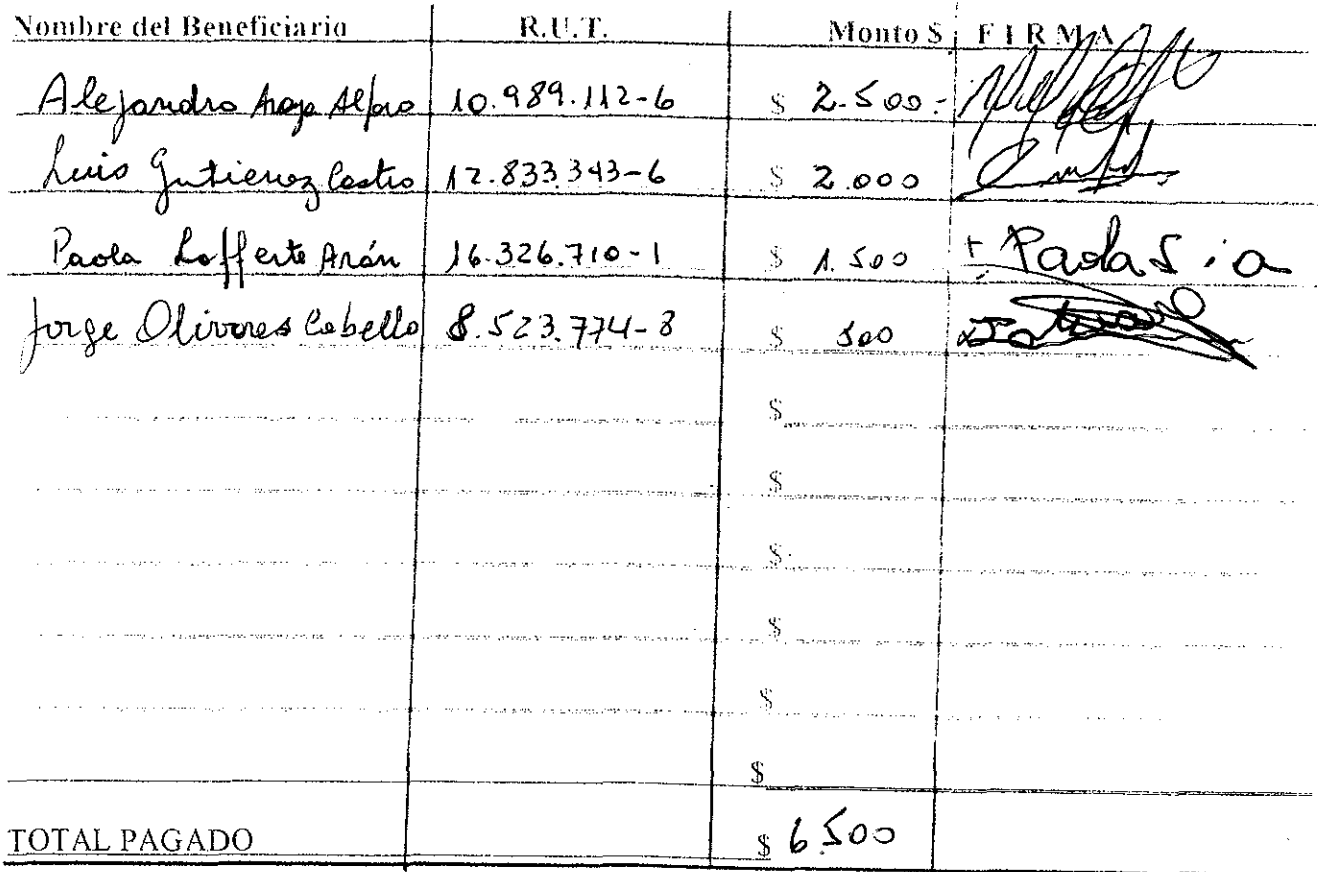 Nombre del Beneficiario R.U.T. Monto $ FIRMA
Alejandro Alfaro 10.989.112-6 $ 2.500.-
Luis Gutierrez Castro 12.833.343-6 $ 2.000
Paola Lafferte Arán 16.326.710-1 $ 1.500 Paola
Jorge Olivares Cabello 8.523.774-8 $ 500
$
$
$
$
$
$
TOTAL PAGADO $ 6.500